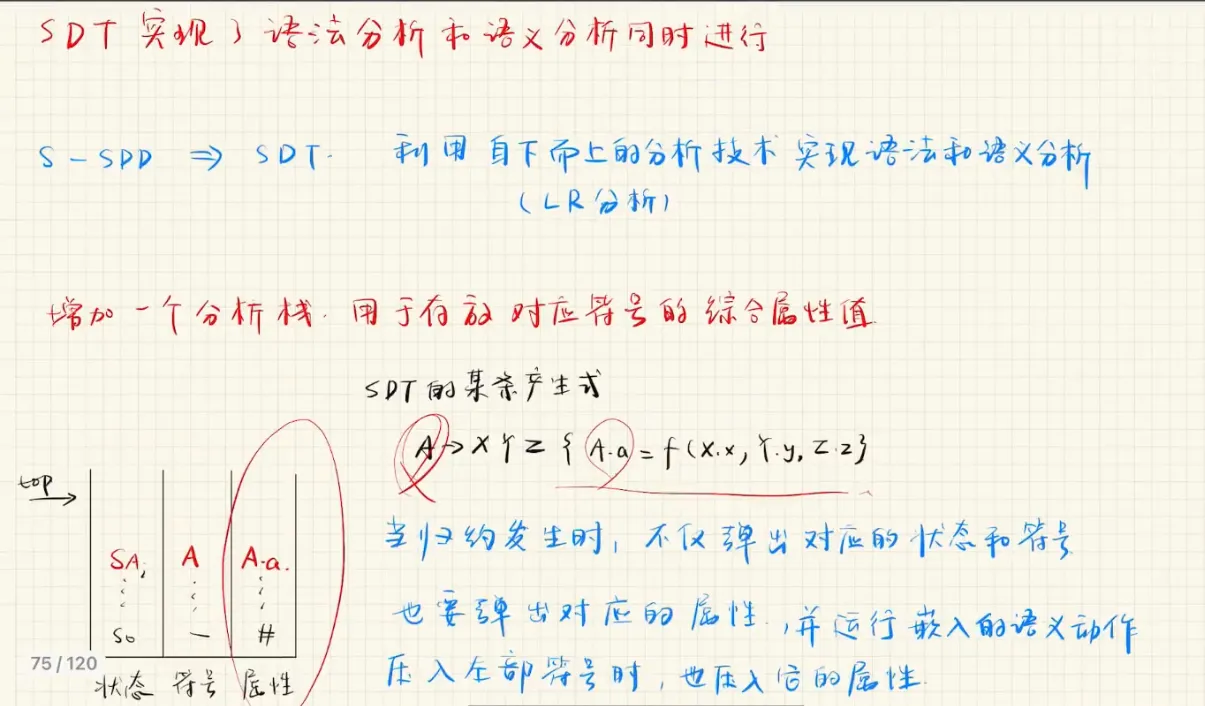 SDT 实现了语法分析和语义分析同时进行
S-SDD ⇒ SDT. 利用自下而上的分析技术实现语法和语义分析
(LR分析)
增加一个分析栈. 用于存放对应符号的综合属性值
SDT的某条产生式
A→XYZ {A.a = f(X.x, Y.y, Z.z)}
top
当归约发生时, 不仅弹出对应的状态和符号
SA A A.a.
也要弹出对应的属性, 并运行嵌入的语义动作
S0 — #
压入左部符号时, 也压入它的属性.
75/120
状态 符号 属性